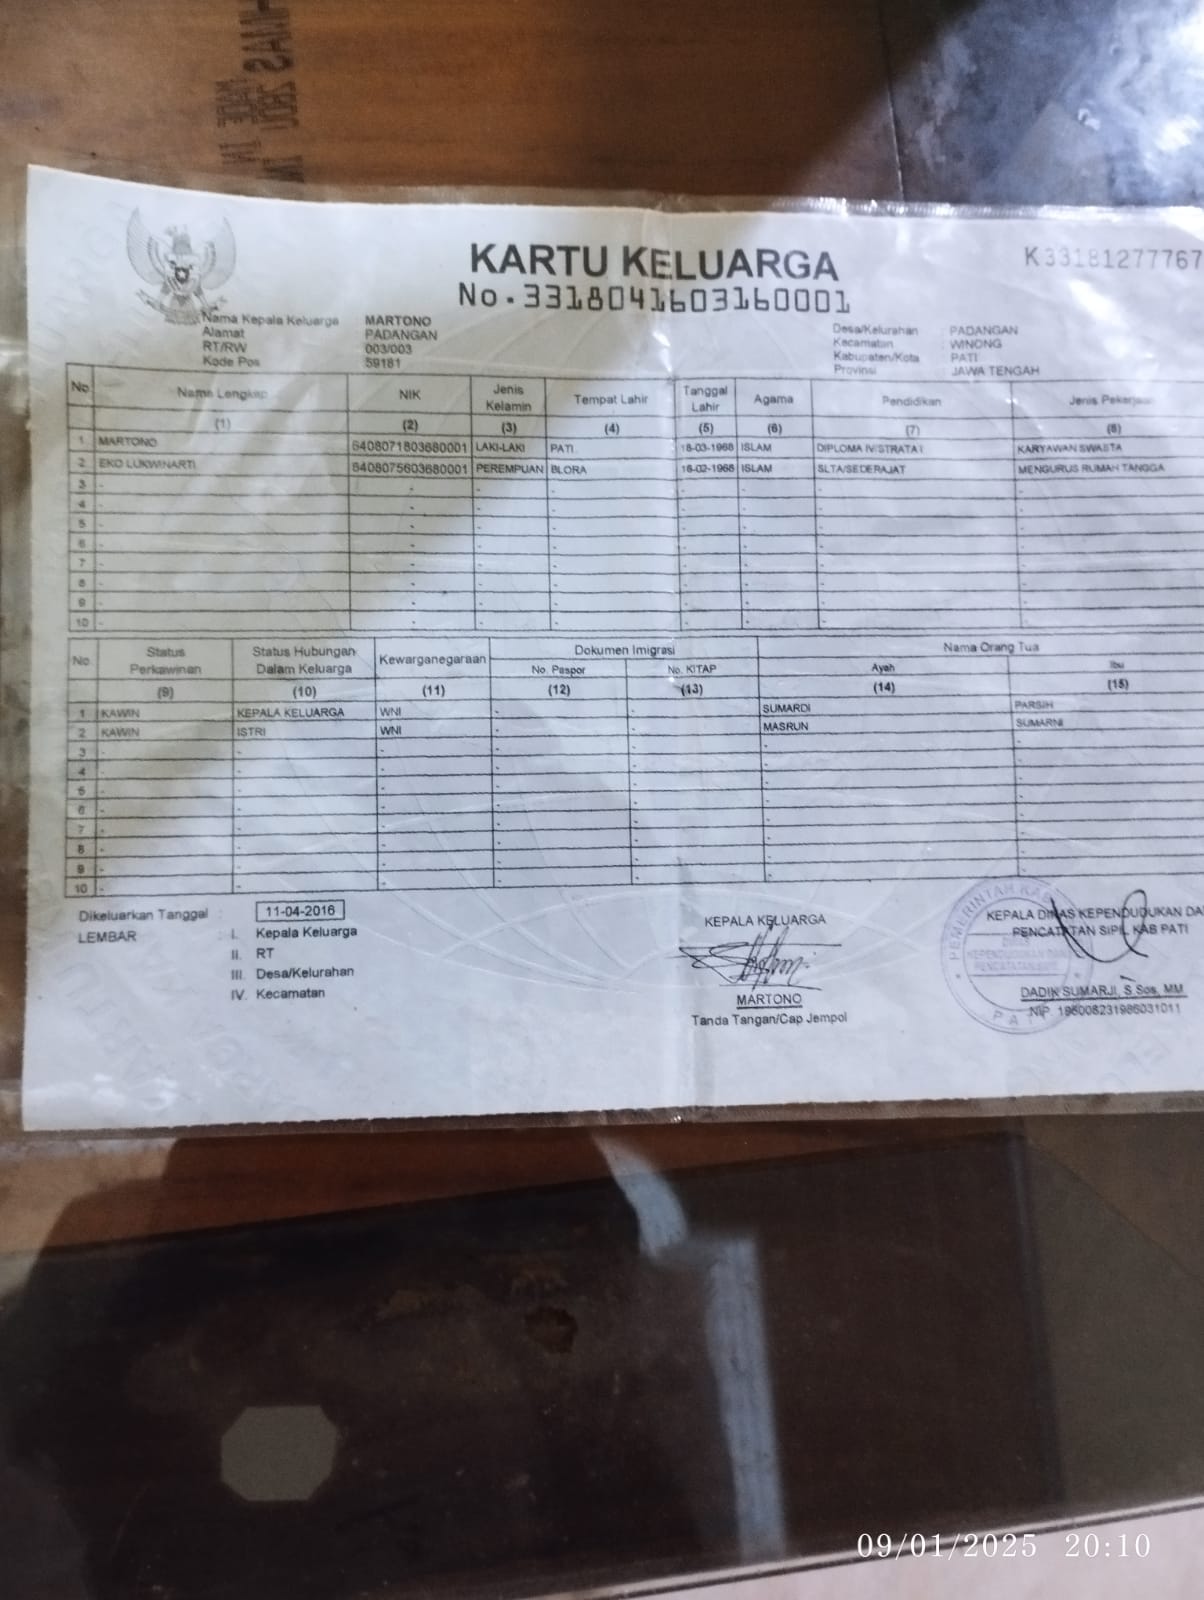 KARTU KELUARGA
No. 3318041603160001
K 33181277767
Nama Kepala Keluarga MARTONO
Alamat PADANGAN
RT/RW 003/003
Kode Pos 59181
Desa/Kelurahan : PADANGAN
Kecamatan : WINONG
Kabupaten/Kota : PATI
Provinsi : JAWA TENGAH
No Nama Lengkap NIK Jenis Kelamin Tempat Lahir Tanggal Lahir Agama Pendidikan Jenis Pekerjaan
(1) (2) (3) (4) (5) (6) (7) (8)
1 MARTONO 6408071803680001 LAKI-LAKI PATI 18-03-1968 ISLAM DIPLOMA IV/STRATA I KARYAWAN SWASTA
2 EKO LUKWINARTI 6408075603680001 PEREMPUAN BLORA 16-02-1968 ISLAM SLTA/SEDERAJAT MENGURUS RUMAH TANGGA
3 - - - - - - - -
4 - - - - - - - -
5 - - - - - - - -
6 - - - - - - - -
7 - - - - - - - -
8 - - - - - - - -
9 - - - - - - - -
10 - - - - - - - -
No Status Perkawinan Status Hubungan Dalam Keluarga Kewarganegaraan Dokumen Imigrasi Nama Orang Tua
No. Paspor No. KITAP Ayah Ibu
(9) (10) (11) (12) (13) (14) (15)
1 KAWIN KEPALA KELUARGA WNI - - SUMARDI PARSIH
2 KAWIN ISTRI WNI - - MASRUN SUMARNI
3 - - - - - - -
4 - - - - - - -
5 - - - - - - -
6 - - - - - - -
7 - - - - - - -
8 - - - - - - -
9 - - - - - - -
10 - - - - - - -
Dikeluarkan Tanggal : 11-04-2016
LEMBAR : I. Kepala Keluarga
II. RT
III. Desa/Kelurahan
IV. Kecamatan
KEPALA KELUARGA
MARTONO
Tanda Tangan/Cap Jempol
KEPALA DINAS KEPENDUDUKAN DA
PENCATATAN SIPIL KAB PATI
PEMERINTAH KAB
DINAS
KEPENDUDUKAN DAN
PENCATATAN
PATI
DADIK SUMARJI, S.Sos, MM
NIP. 196006231986031011
09/01/2025 20:10